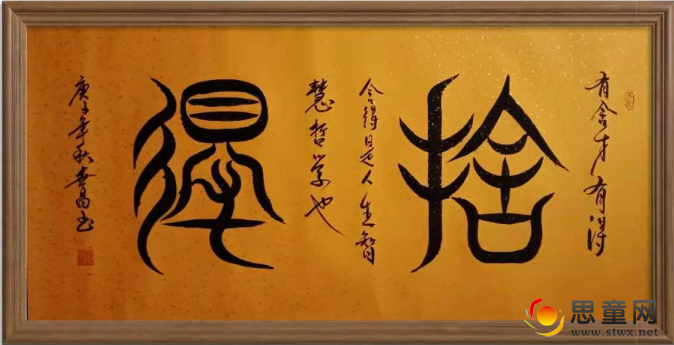 有舍才有得
捨
舍得是人生智
慧哲学也
得
庚子年秋
思童网
www.stwx.net